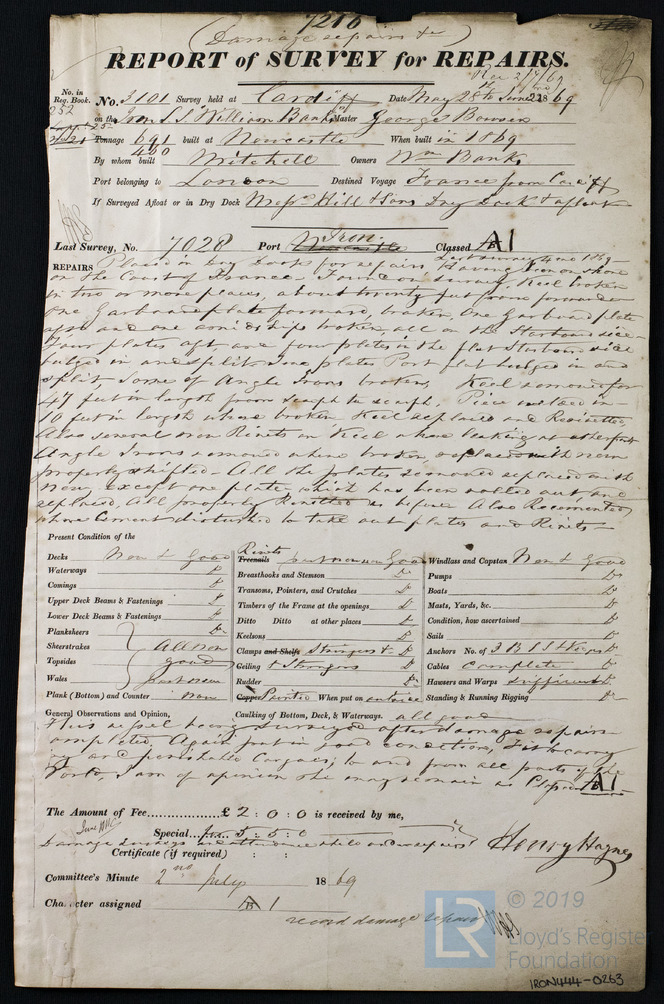 7216
(Damage repairs &c)
REPORT of SURVEY for REPAIRS.
No. in Reg. Book. No. 3101 Survey held at Cardiff Date May 28th June 22 1869
252 on the Iron S.S. "William Banks" Master George Bowen
Tonnage 691 built at Newcastle When built in 1869
420
By whom built Mitchell Owners Wm Banks
Port belonging to London Destined Voyage France from Cardiff
If Surveyed Afloat or in Dry Dock Messrs Hill & Sons Dry Dock & afloat
Last Survey, No. 7028 Port Iron Classed A1
REPAIRS Placed in Dry Dock for repairs having been on shore
on the Coast of France Found on survey, Keel broken
in two or more places, about twenty feet from forward
one Garboard plate forward, broken, One Garboard plate
aft and one amidships broken, all on the Starboard side
Four plates aft and four plates in the flat Starboard side
bulged in and split nine plates Port flat bulged in and
split Some of Angle Irons broken, Keel removed for
47 feet in length from scarph to scarph. Piece welded in
10 feet in length where broken Keel replaced and Reriveted
Also several new Rivets in Keel where leaking at other parts
Angle Irons removed where broken, replaced with new
properly shifted - All the plates removed replaced with
new, except one plate which has been rolled out and
replaced, all properly Rivetted as before Also Recemented
where Cement disturbed to take out plates and Rivets
Present Condition of the
Decks New & Good
Waterways Do
Comings Do
Upper Deck Beams & Fastenings Do
Lower Deck Beams & Fastenings Do
Planksheers Do
Sheerstrakes All new
Topsides good
Wales part new
Plank (Bottom) and Counter new
Rivets
Treenails part renewed Good
Breasthooks and Stemson Do
Transoms, Pointers, and Crutches Do
Timbers of the Frame at the openings Do
Ditto Ditto at other places Do
Keelsons Do
Clamps and Shelfs Stringers & Do
Ceiling & Stringers Do
Rudder Do
Copper Painted When put on entire
Caulking of Bottom, Deck, & Waterways. all good
Windlass and Capstan New & Good
Pumps Do
Boats Do
Masts, Yards, &c. Do
Condition, how ascertained Do
Sails Do
Anchors No. of 3 B 1 S & Kedges Do
Cables Complete Do
Hawsers and Warps sufficient Do
Standing & Running Rigging Do
General Observations and Opinion,
This vessel having surveyed after damage repairs
completed, Again put in good condition, Fit to carry
dry and perishable Cargoes, to and from all parts of the
World I am of opinion she may remain as Classed A1
The Amount of Fee................£ 2 : 0 : 0 is received by me,
Special.... 5 : 5 : 0
Damage Surveys and attendance while under repairs
Certificate (if required) : :
Henry Haynes
Committee's Minute 2nd July 1869
Character assigned A 1
record damage repairs
© 2019
LR
Lloyd's Register
Foundation
IRON444-0263